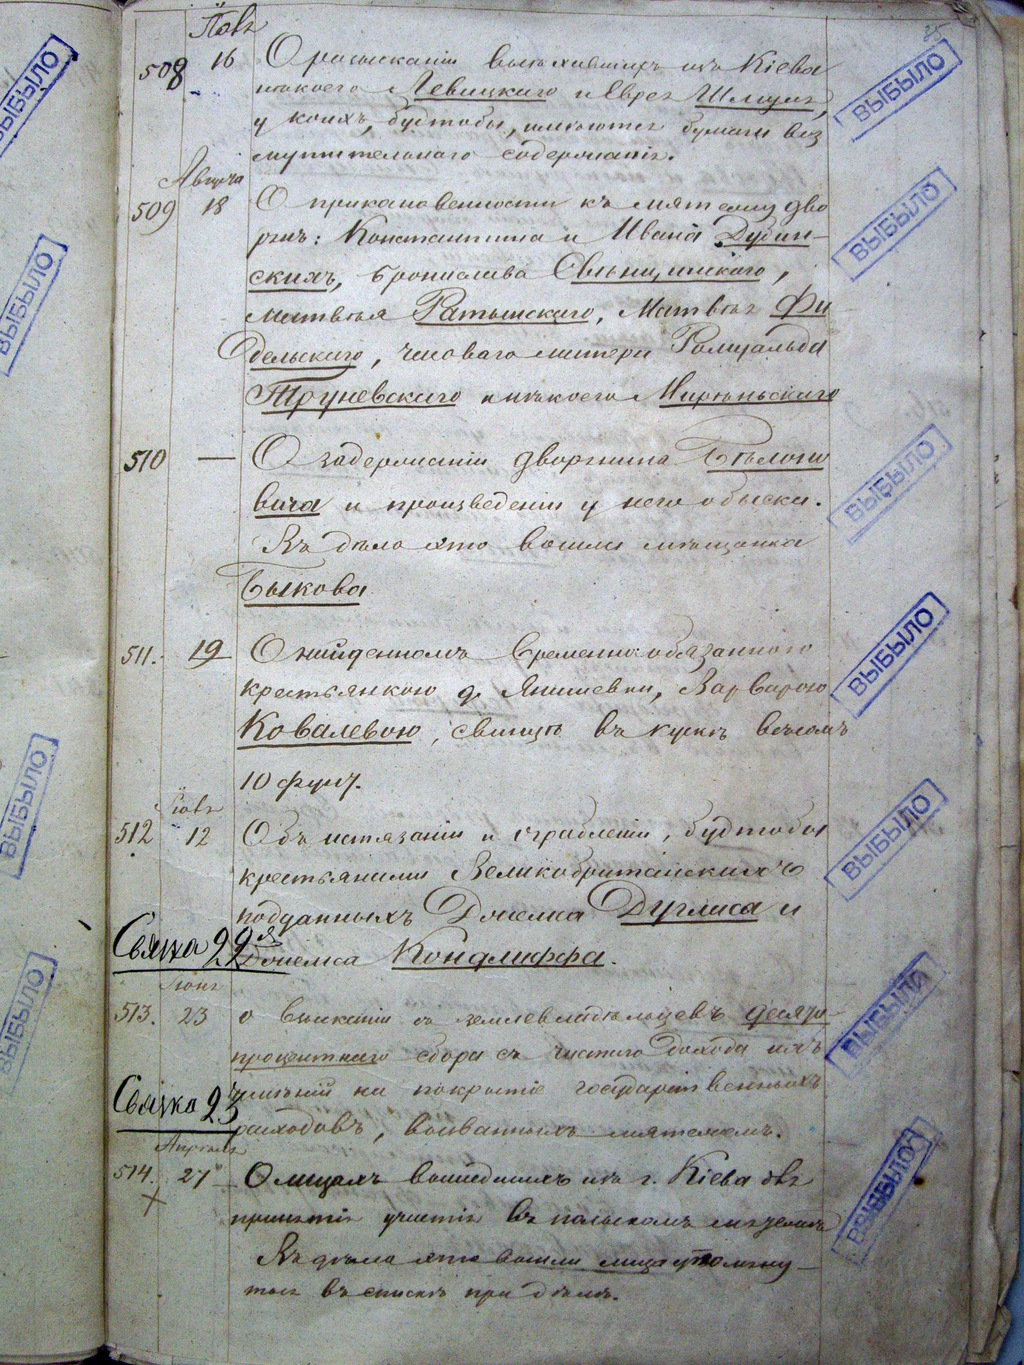 35
508 16 О розысканіи выѣхавшихъ изъ Кіева
нѣкоего Левицкаго и Еврея Шмуля,
у коихъ, будтобы, имѣются бумаги воз
мутительнаго содержанія.
Августа
509 18 О прикосновенности къ мятежу дво
рянъ: Константина и Ивана Дубин-
скихъ, Бронислава
Матвѣя Ратынскаго, Матвѣя Фи
дельскаго, Ромуальда
Труневскаго и нѣкоего
510 — О задержаніи дворянина
вича и произведеніи у него обыска.
Въ дѣло это вошли мѣщанка
Быкова
511. 19 О найденномъ временно-обязанною
крестьянкою д. Янишевки, Варварою
Ковалевою, свинцѣ въ кускѣ вѣсомъ
10 фун.
512 12 Объ истязаніи и ограбленіи, будтобы
крестьянами Великобританскихъ
подданныхъ Джемса Дугласа и
Связка 22я
Джемса Кондлиффа.
Іюня
513. 23 О взысканіи съ землевладѣльцевъ десяти
процентнаго сбора съ чистаго дохода ихъ
имѣній на покрытіе государственныхъ
Связка 23
расходовъ, вызванныхъ мятежемъ.
Апрѣля
514. 27 О лицахъ вышедшихъ изъ г. Кіева для
принятія участія въ польскомъ мятежѣ
Въ дѣло это вошли лица упомяну-
тыя въ спискѣ при дѣлѣ.
ВЫБЫЛО
ВЫБЫЛО
ВЫБЫЛО
ВЫБЫЛО
ВЫБЫЛО
ВЫБЫЛО
ВЫБЫЛО
ВЫБЫЛО
ВЫБЫЛО
ВЫБЫЛО
ВЫБЫЛО